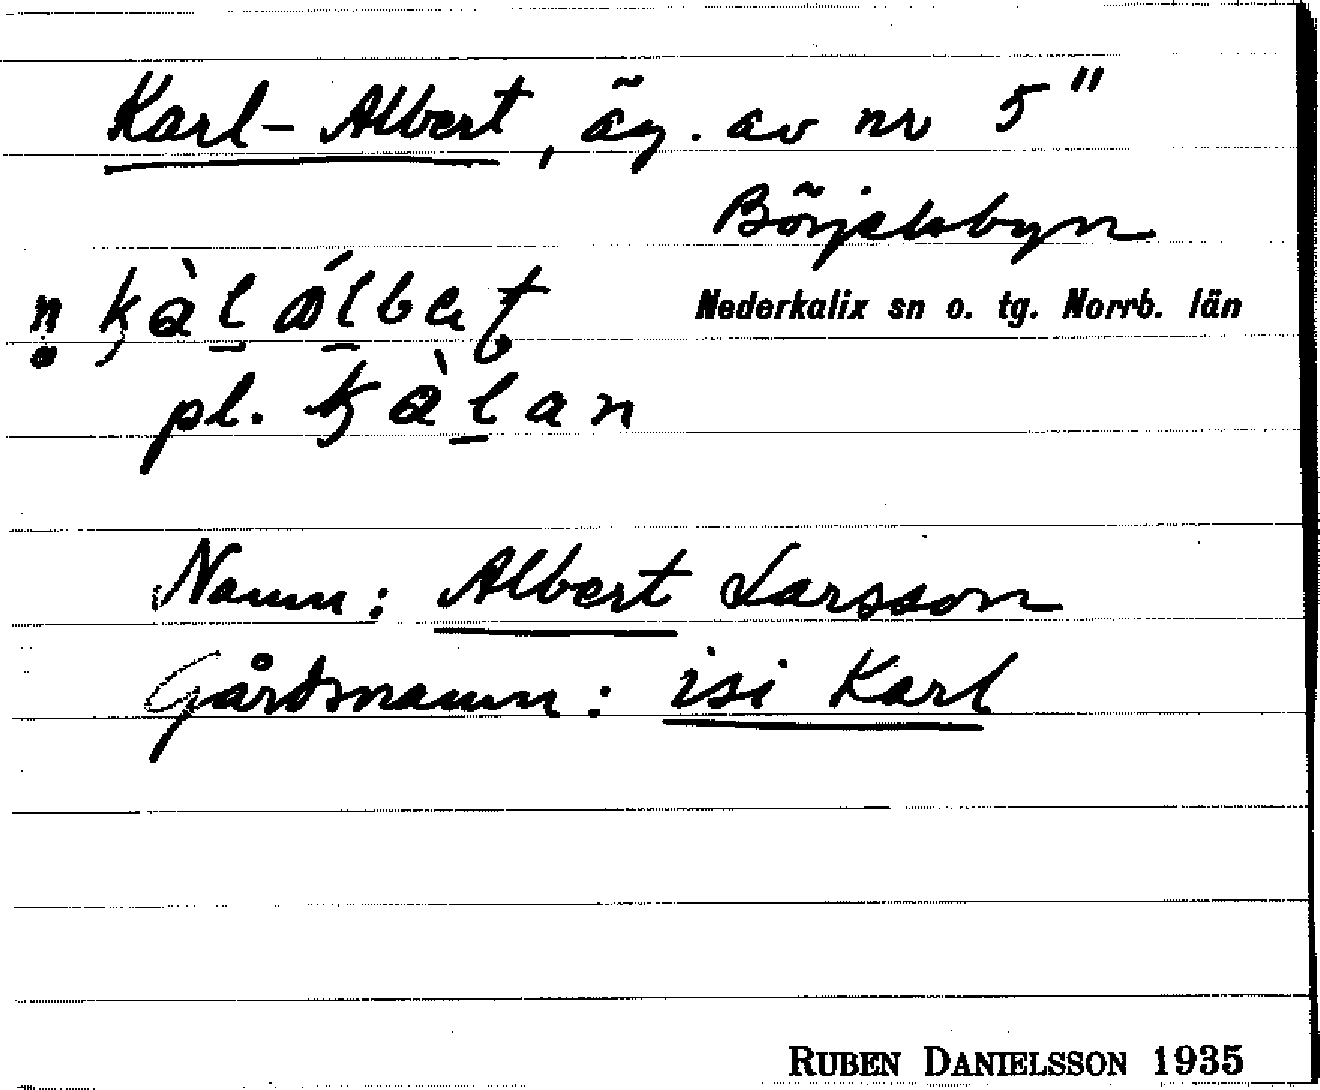 Karl-Albert, äg. av nr 5"
Börjelsbyn
Nederkalix sn o. tg. Norrb. län
pl.
Namn: Albert Larsson
Gårdsnamn: isi Karl
RUBEN DANIELSSON 1935